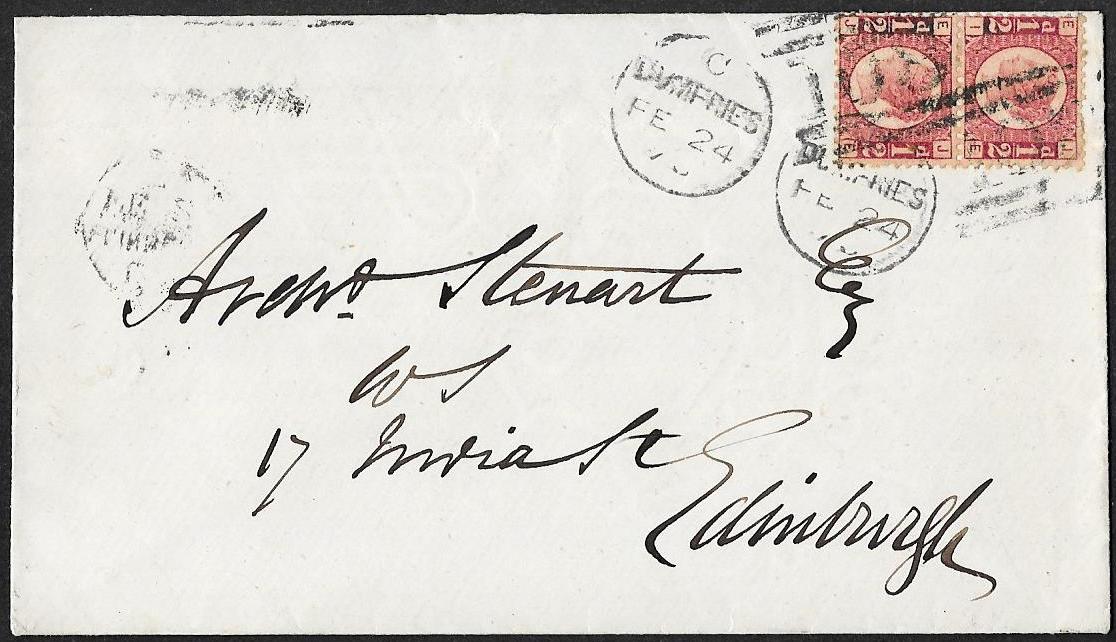 C
DUMFRIES
FE 24
7
DUMFRIES
FE 24
7
J E
1/2 d
E J
I E
1/2 d
E I
Archd. Stewart Esq
WS
17 India St
Edinburgh